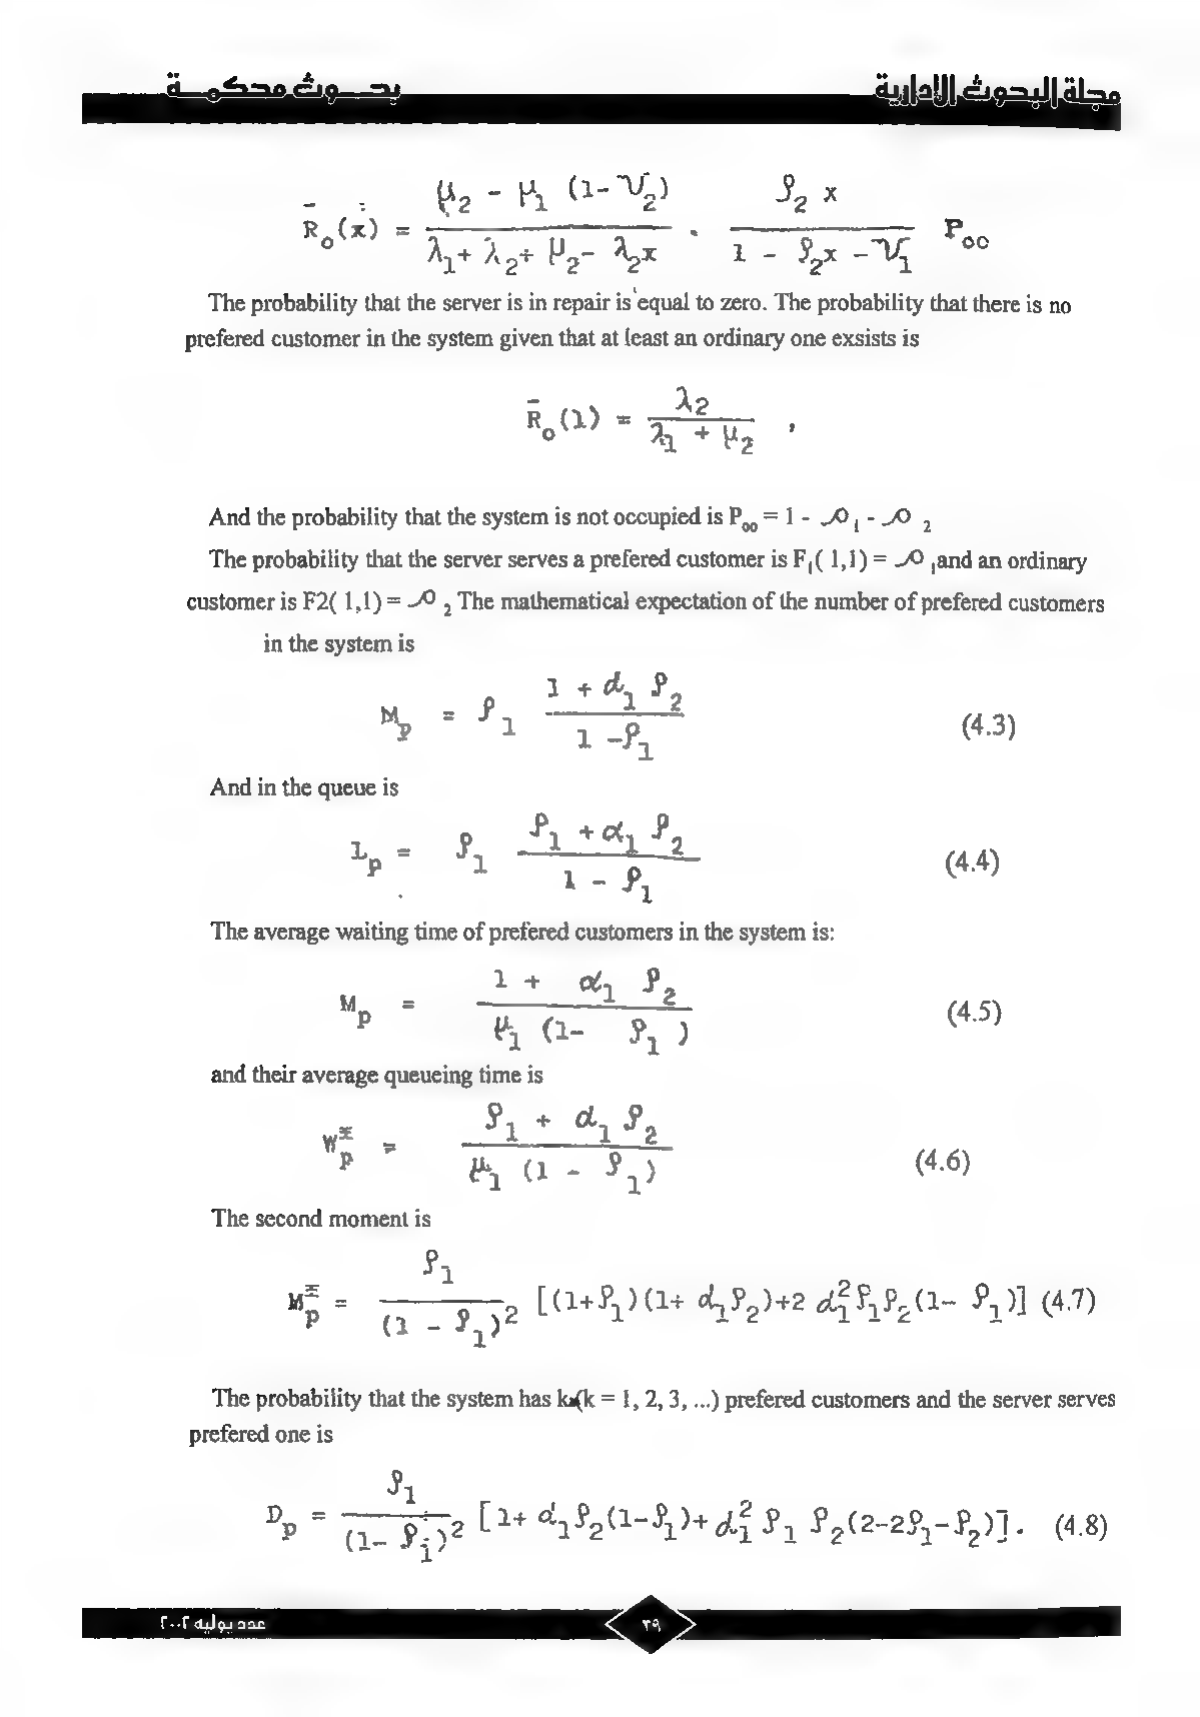 بحـــوث محكمـــة
مجلة البحوث الإدارية
R̄ₒ(x) = (μ₂ - μ₁ (1-V₂)) / (λ₁+ λ₂+ μ₂- λ₂x) . (ρ₂ x) / (1 - ρ₂x - V₁) Pₒₒ
The probability that the server is in repair is equal to zero. The probability that there is no
prefered customer in the system given that at least an ordinary one exsists is
R̄ₒ(1) = λ₂ / (λ₁ + μ₂) ,
And the probability that the system is not occupied is Pₒₒ = 1 - ρ₁ - ρ ₂
The probability that the server serves a prefered customer is F₁( 1,1) = ρ ₁and an ordinary
customer is F2( 1,1) = ρ ₂ The mathematical expectation of the number of prefered customers
in the system is
Mₚ = ρ₁ (1 + α₁ ρ₂) / (1 - ρ₁) (4.3)
And in the queue is
Lₚ = ρ₁ (ρ₁ + α₁ ρ₂) / (1 - ρ₁) (4.4)
The average waiting time of prefered customers in the system is:
Mₚ = (1 + α₁ ρ₂) / (μ₁ (1- ρ₁ )) (4.5)
and their average queueing time is
W*ₚ = (ρ₁ + α₁ ρ₂) / (μ₁ (1 - ρ₁)) (4.6)
The second moment is
M*ₚ = ρ₁ / (1 - ρ₁)² [(1+ρ₁)(1+ α₁ρ₂)+2 α₁²ρ₁ρ₂(1- ρ₁)] (4.7)
The probability that the system has k (k = 1, 2, 3, ...) prefered customers and the server serves
prefered one is
Dₚ = ρ₁ / (1- ρ₁)² [1+ α₁ρ₂(1-ρ₁)+ α₁² ρ₁ ρ₂(2-2ρ₁-ρ₂)]. (4.8)
عدد يوليه ٢٠٠٢
٣٩